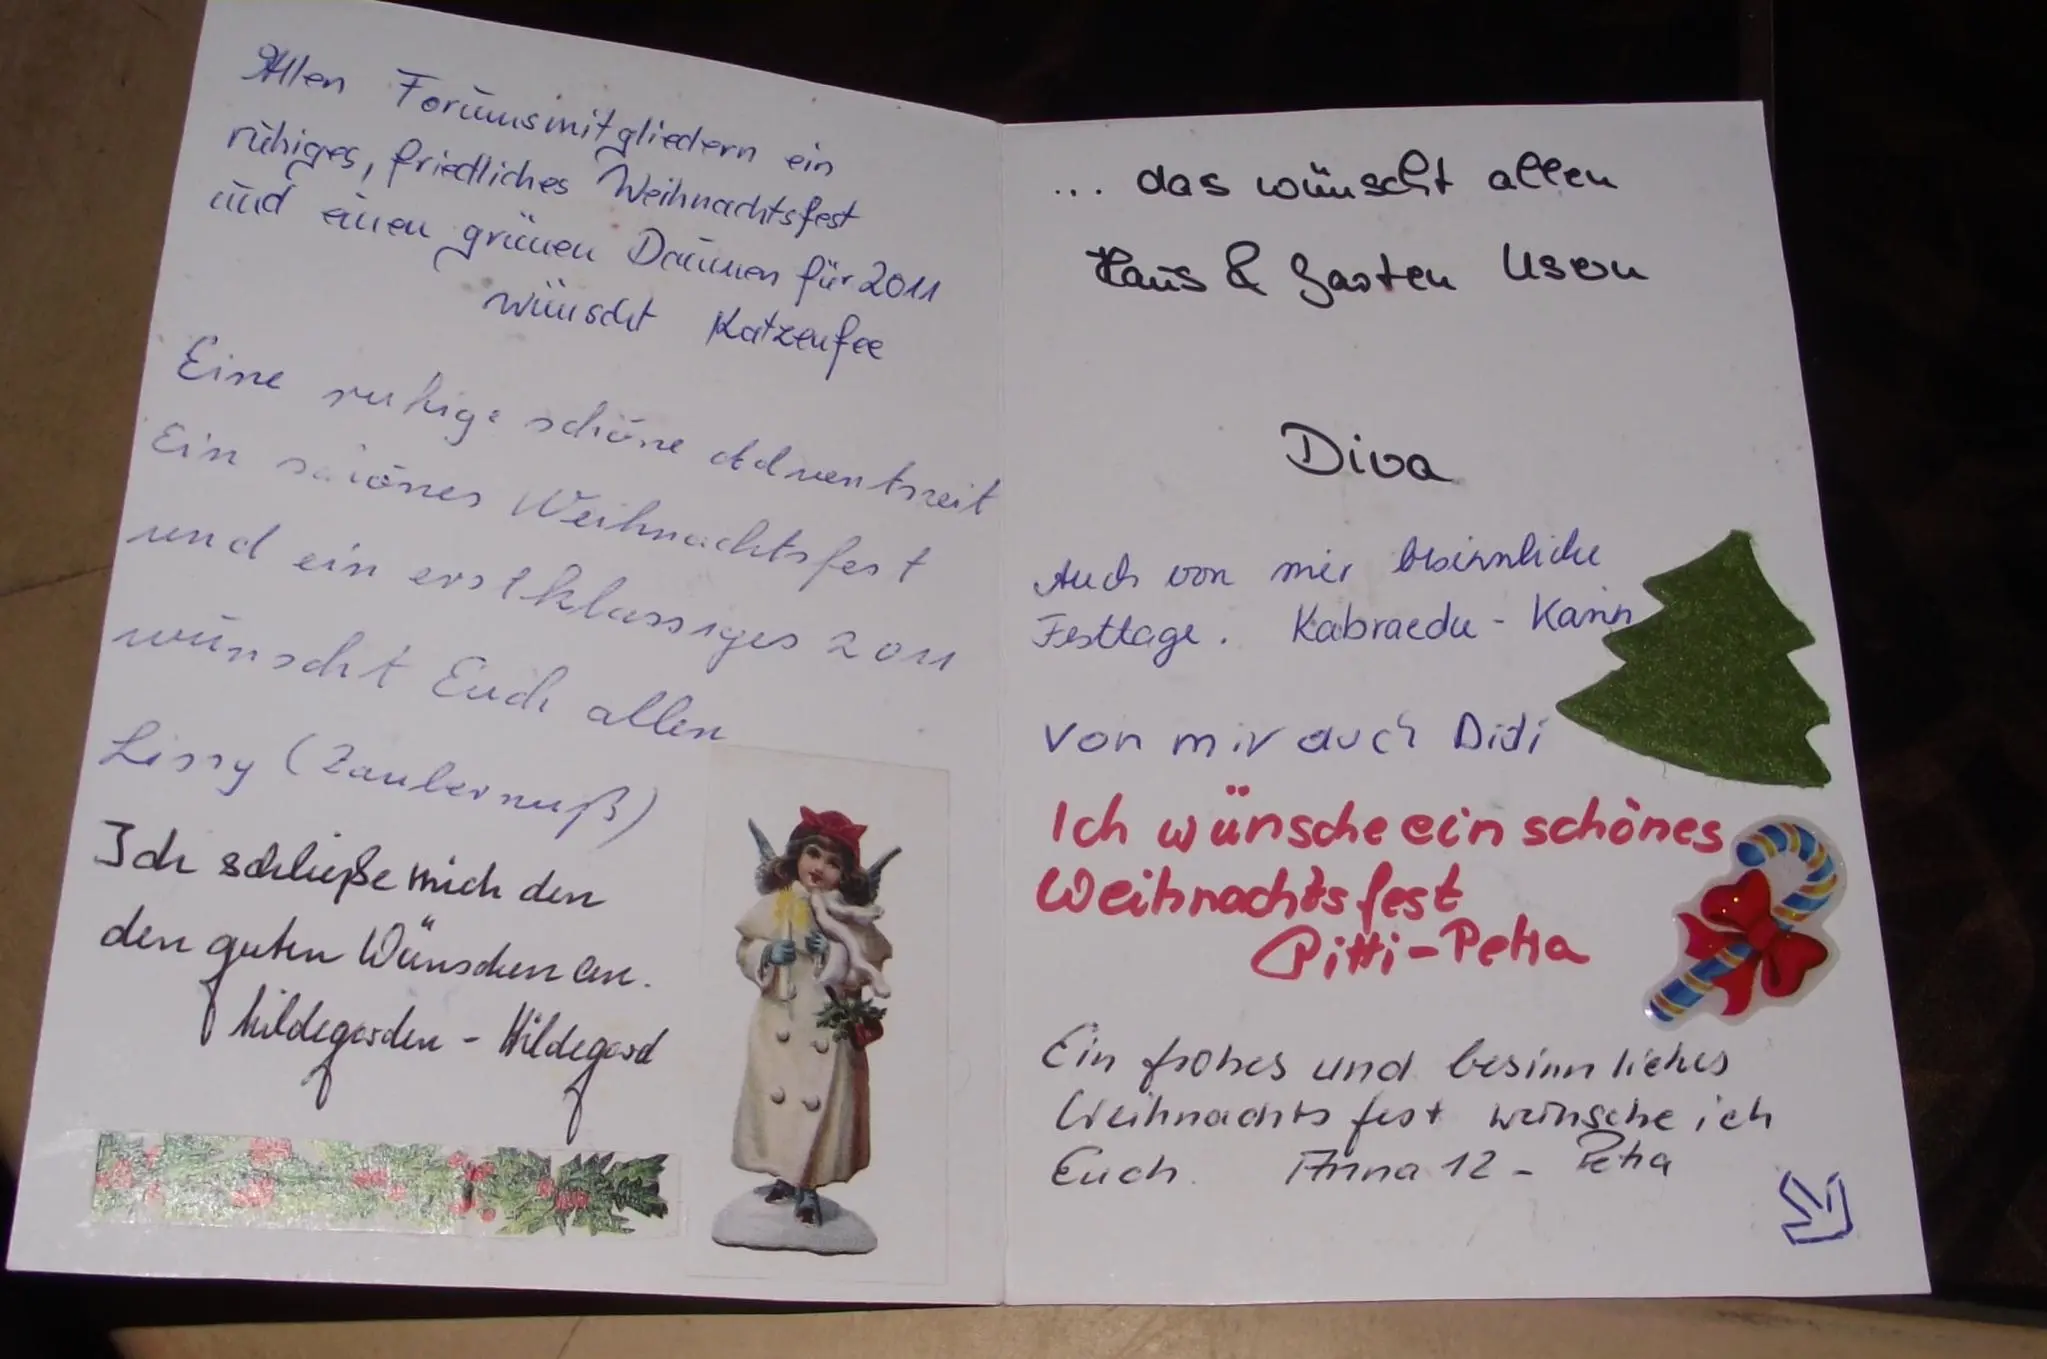 Allen Forumsmitgliedern ein
ruhiges, friedliches Weihnachtsfest
und einen grünen Daumen für 2011
wünscht Katzenfee
Eine ruhige schöne Adventszeit
Ein schönes Weihnachtsfest
und ein erstklassiges 2011
wünscht Euch allen
Lissy (Zaubernuß)
Ich schließe mich den
den guten Wünschen an.
hildegarden - Hildegard
... das wünscht allen
Haus & Garten Usern
Diva
Auch von mir besinnliche
Festtage. - Karin
Von mir auch Didi
Ich wünsche ein schönes
Weihnachtsfest
Pitti-Petra
Ein frohes und besinnliches
Weihnachtsfest wünsche ich
Euch. Anna 12 - Petra